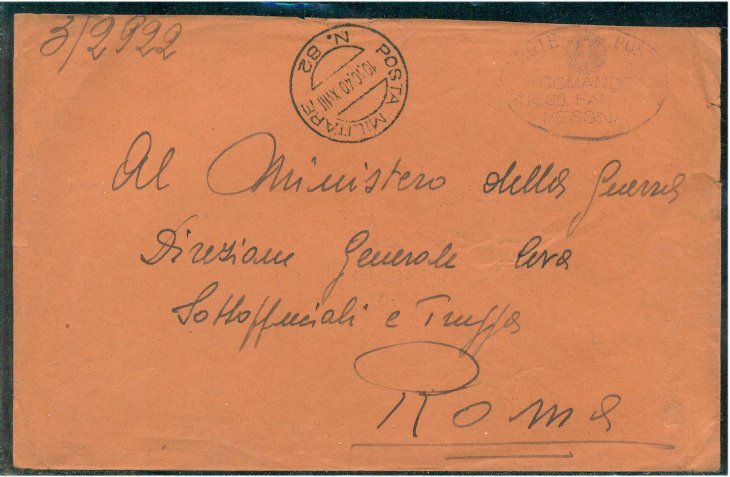 3/2922
POSTA MILITARE N. 82
10.10.40 XVIII
REGIE POS
COMAND
FAN
MESSINA
Al Ministero della Guerra
Direzione Generale Leva
Sottofficiali e Truppa
Roma